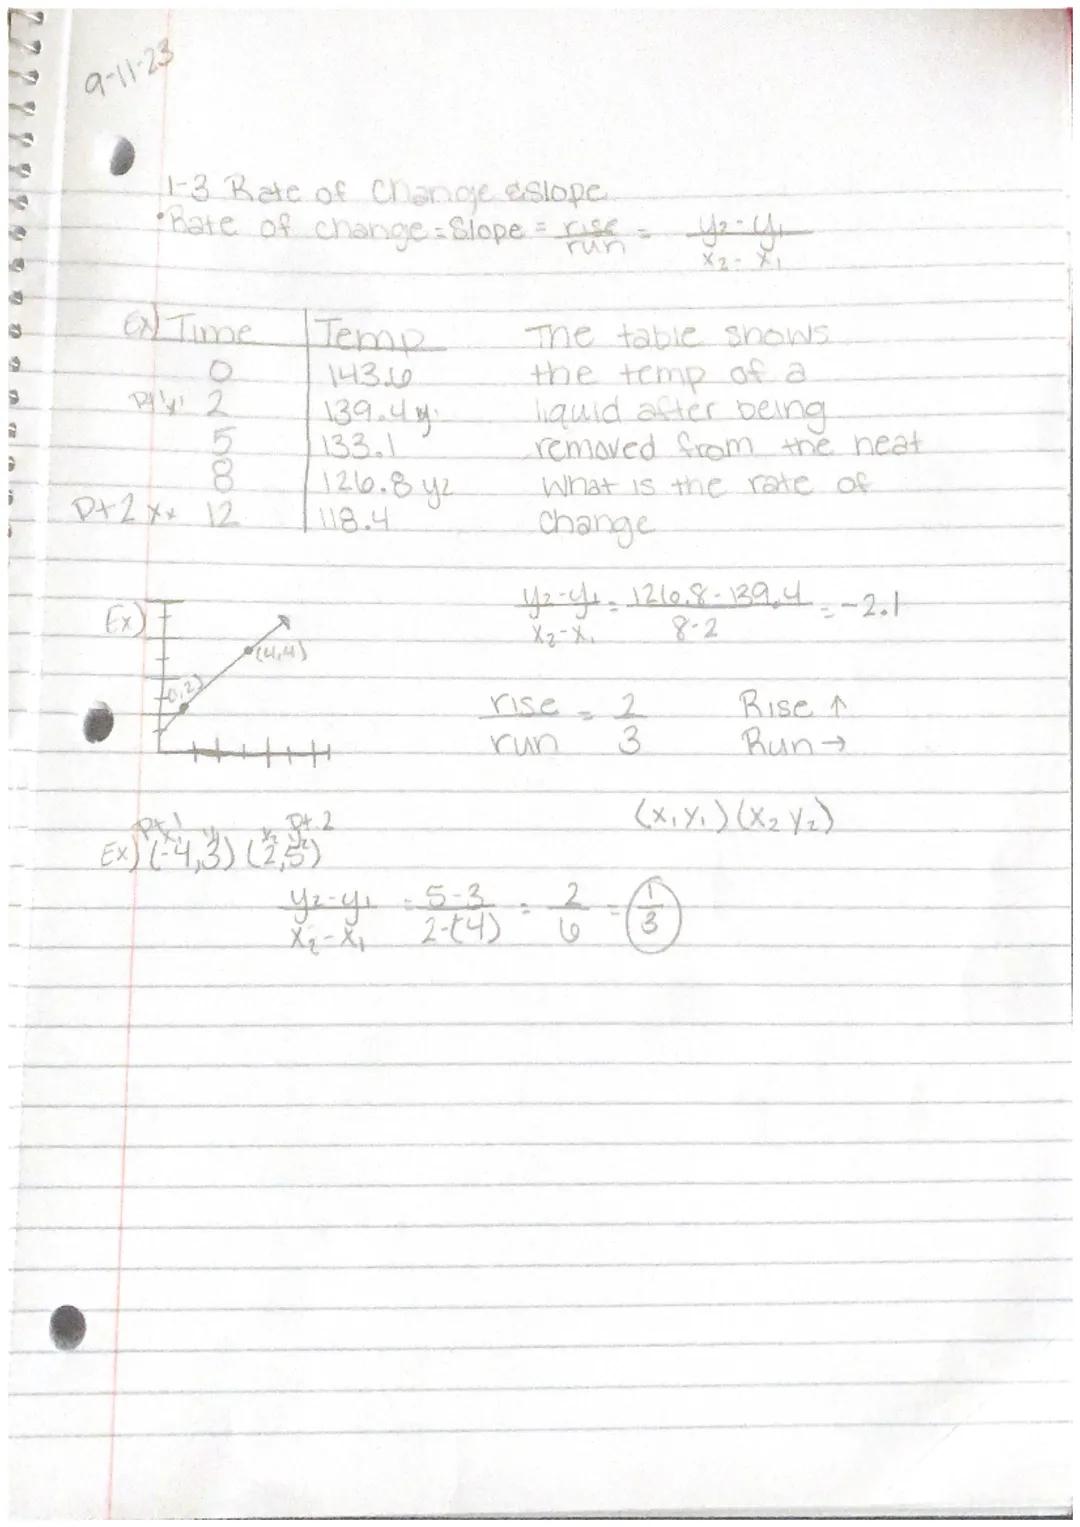 9-11-23
1-3 Rate of Change & Slope
• Rate of change = Slope = rise/run = y₂-y₁/x₂-x₁
Ex) Time | Temp
0 | 143.6
2 | 139.4 y₁
5 | 133.1
8 | 126.8 y₂
Pt 2 12 | 118.4
The table shows
the temp of a
liquid after being
removed from the heat
What is the rate of
change
y₂-y₁/x₂-x₁ = 126.8-139.4/8-2 = -2.1
Ex)
(4,4)
(1,2)
rise/run = 2/3
Rise ↑
Run →
(x₁y₁) (x₂y₂)
Pt 1 Pt.2
x₁ y₁ x₂ y₂
Ex) (-4,3) (2,5)
y₂-y₁/x₂-x₁ = 5-3/2-(-4) = 2/6 = 1/3